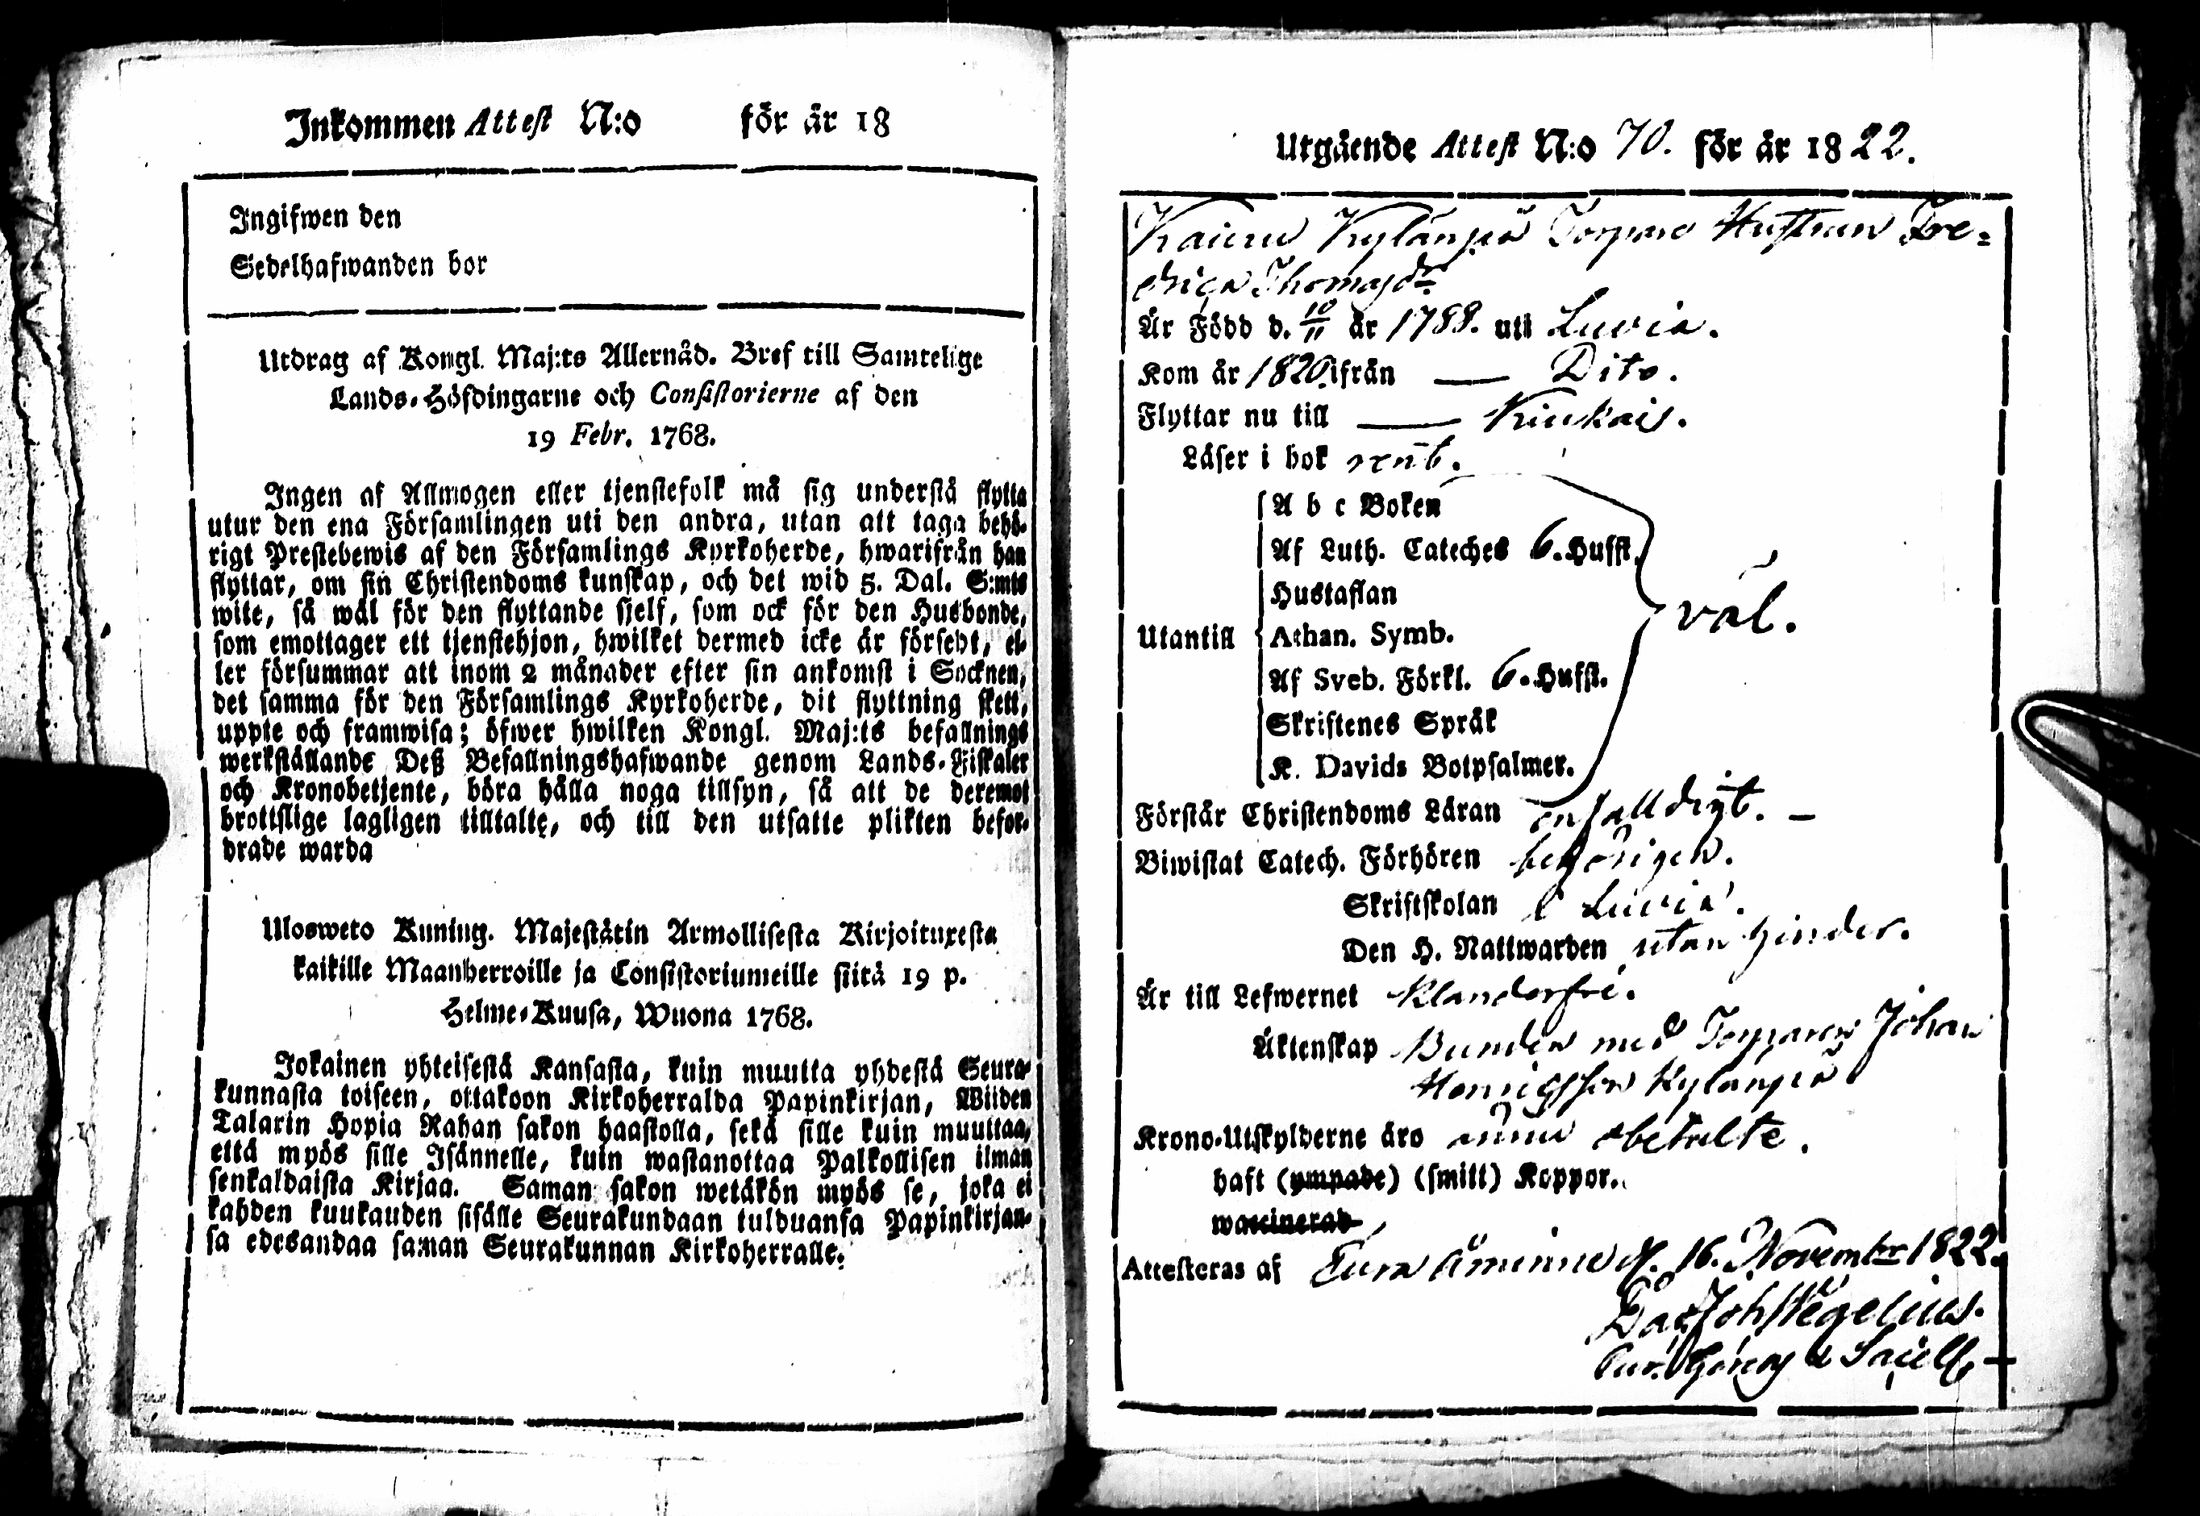 Inkommen Attest N:o för år 18
Ingifwen den
Sedelhafwanden bor
Utdrag af Kongl. Maj:ts Allernåd. Bref till Samtelige
Lands-Höfdingarne och Consistorierne af den
19 Febr. 1768.
Ingen af Allmogen eller tjenstefolk må sig understå flytta
utur den ena Församlingen uti den andra, utan att taga behö-
rigt Prestebewis af den Församlings Kyrkoherde, hwarifrån han
flyttar, om sin Christendoms kunskap, och det wid 5. Dal. S:mts
wite, så wäl för den flyttande sjelf, som ock för den Husbonde,
som emottager ett tjenstehjon, hwilket dermed icke är försedt, el-
ler försummar att inom 2 månader efter sin ankomst i Socknen,
det samma för den Församlings Kyrkoherde, dit flyttning skett,
uppte och framwisa; öfwer hwilken Kongl. Maj:ts befallnings
werkställande Deß Befallningshafwande genom Lands-Fiskaler
och Kronobetjente, böra hålla noga tillsyn, så att de deremot
brottslige lagligen tilltalte, och till den utsatte plikten befor-
drade warda
Ulosweto Kuning. Majestätin Armollisesta Kirjoituxesta
kaikille Maanherroille ja Consistoriumeille siitä 19 p.
Helme-Kuusa, Wuona 1768.
Jokainen yhteisestä Kansasta, kuin muutta yhdestä Seura-
kunnasta toiseen, ottakoon Kirkoherralda Papinkirjan, Wiiden
Talarin Hopia Rahan sakon haastolla, sekä sille kuin muuttaa,
että myös sille Isännelle, kuin wastanottaa Palkollisen ilman
senkaldaista Kirjaa. Saman sakon wetäkön myös se, joka ei
kahden kuukauden sisälle Seurakundaan tulduansa Papinkirjan-
sa edesandaa saman Seurakunnan Kirkoherralle.
Utgående Attest N:o 70. för år 1822.
Kylänpää Torpare Hustrun Fre-
drica Thomasdr
Är Född d. 10/11 år 1788. uti Luvia.
Kom år 1820. ifrån — Dito.
Flyttar nu till — Kiukais.
Läser i bok rent.
A b c Boken
Af Luth. Cateches 6. Hufst.
Hustaflan
Utantill Athan. Symb. väl.
Af Sveb. Förkl. 6. Hufst.
Skriftenes Språk
K. Davids Botpsalmer.
Förstår Christendoms Läran enfalldigt. —
Biwistat Catech. Förhören behörigen.
Skriftskolan i Luvia.
Den H. Nattwarden utan hinder.
Är till Lefwernet klanderfri.
Äktenskap Bunden med Torparen Johan
Henricsson Kylänpää
Krono-Utskylderne äro ännu obetalte.
haft (ympade) (smitt) Koppor.
waccinerad
Attesteras af Eura Åminne d. 16. November 1822.
Joh Hegelius.